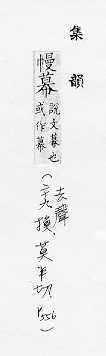 集韻
幔幕
說文幕也
或作幕
(去聲
二九換,莫半切.
P.556)